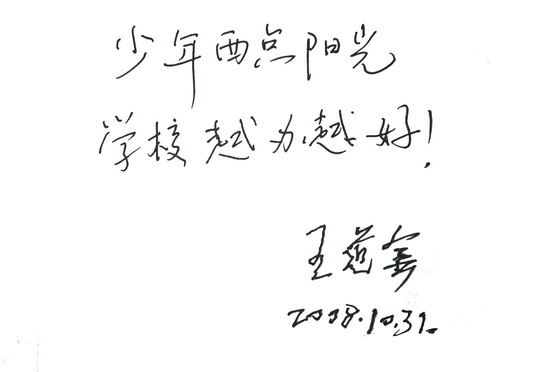 少年西点阳光
学校越办越好!
王范金
2008.10.31.